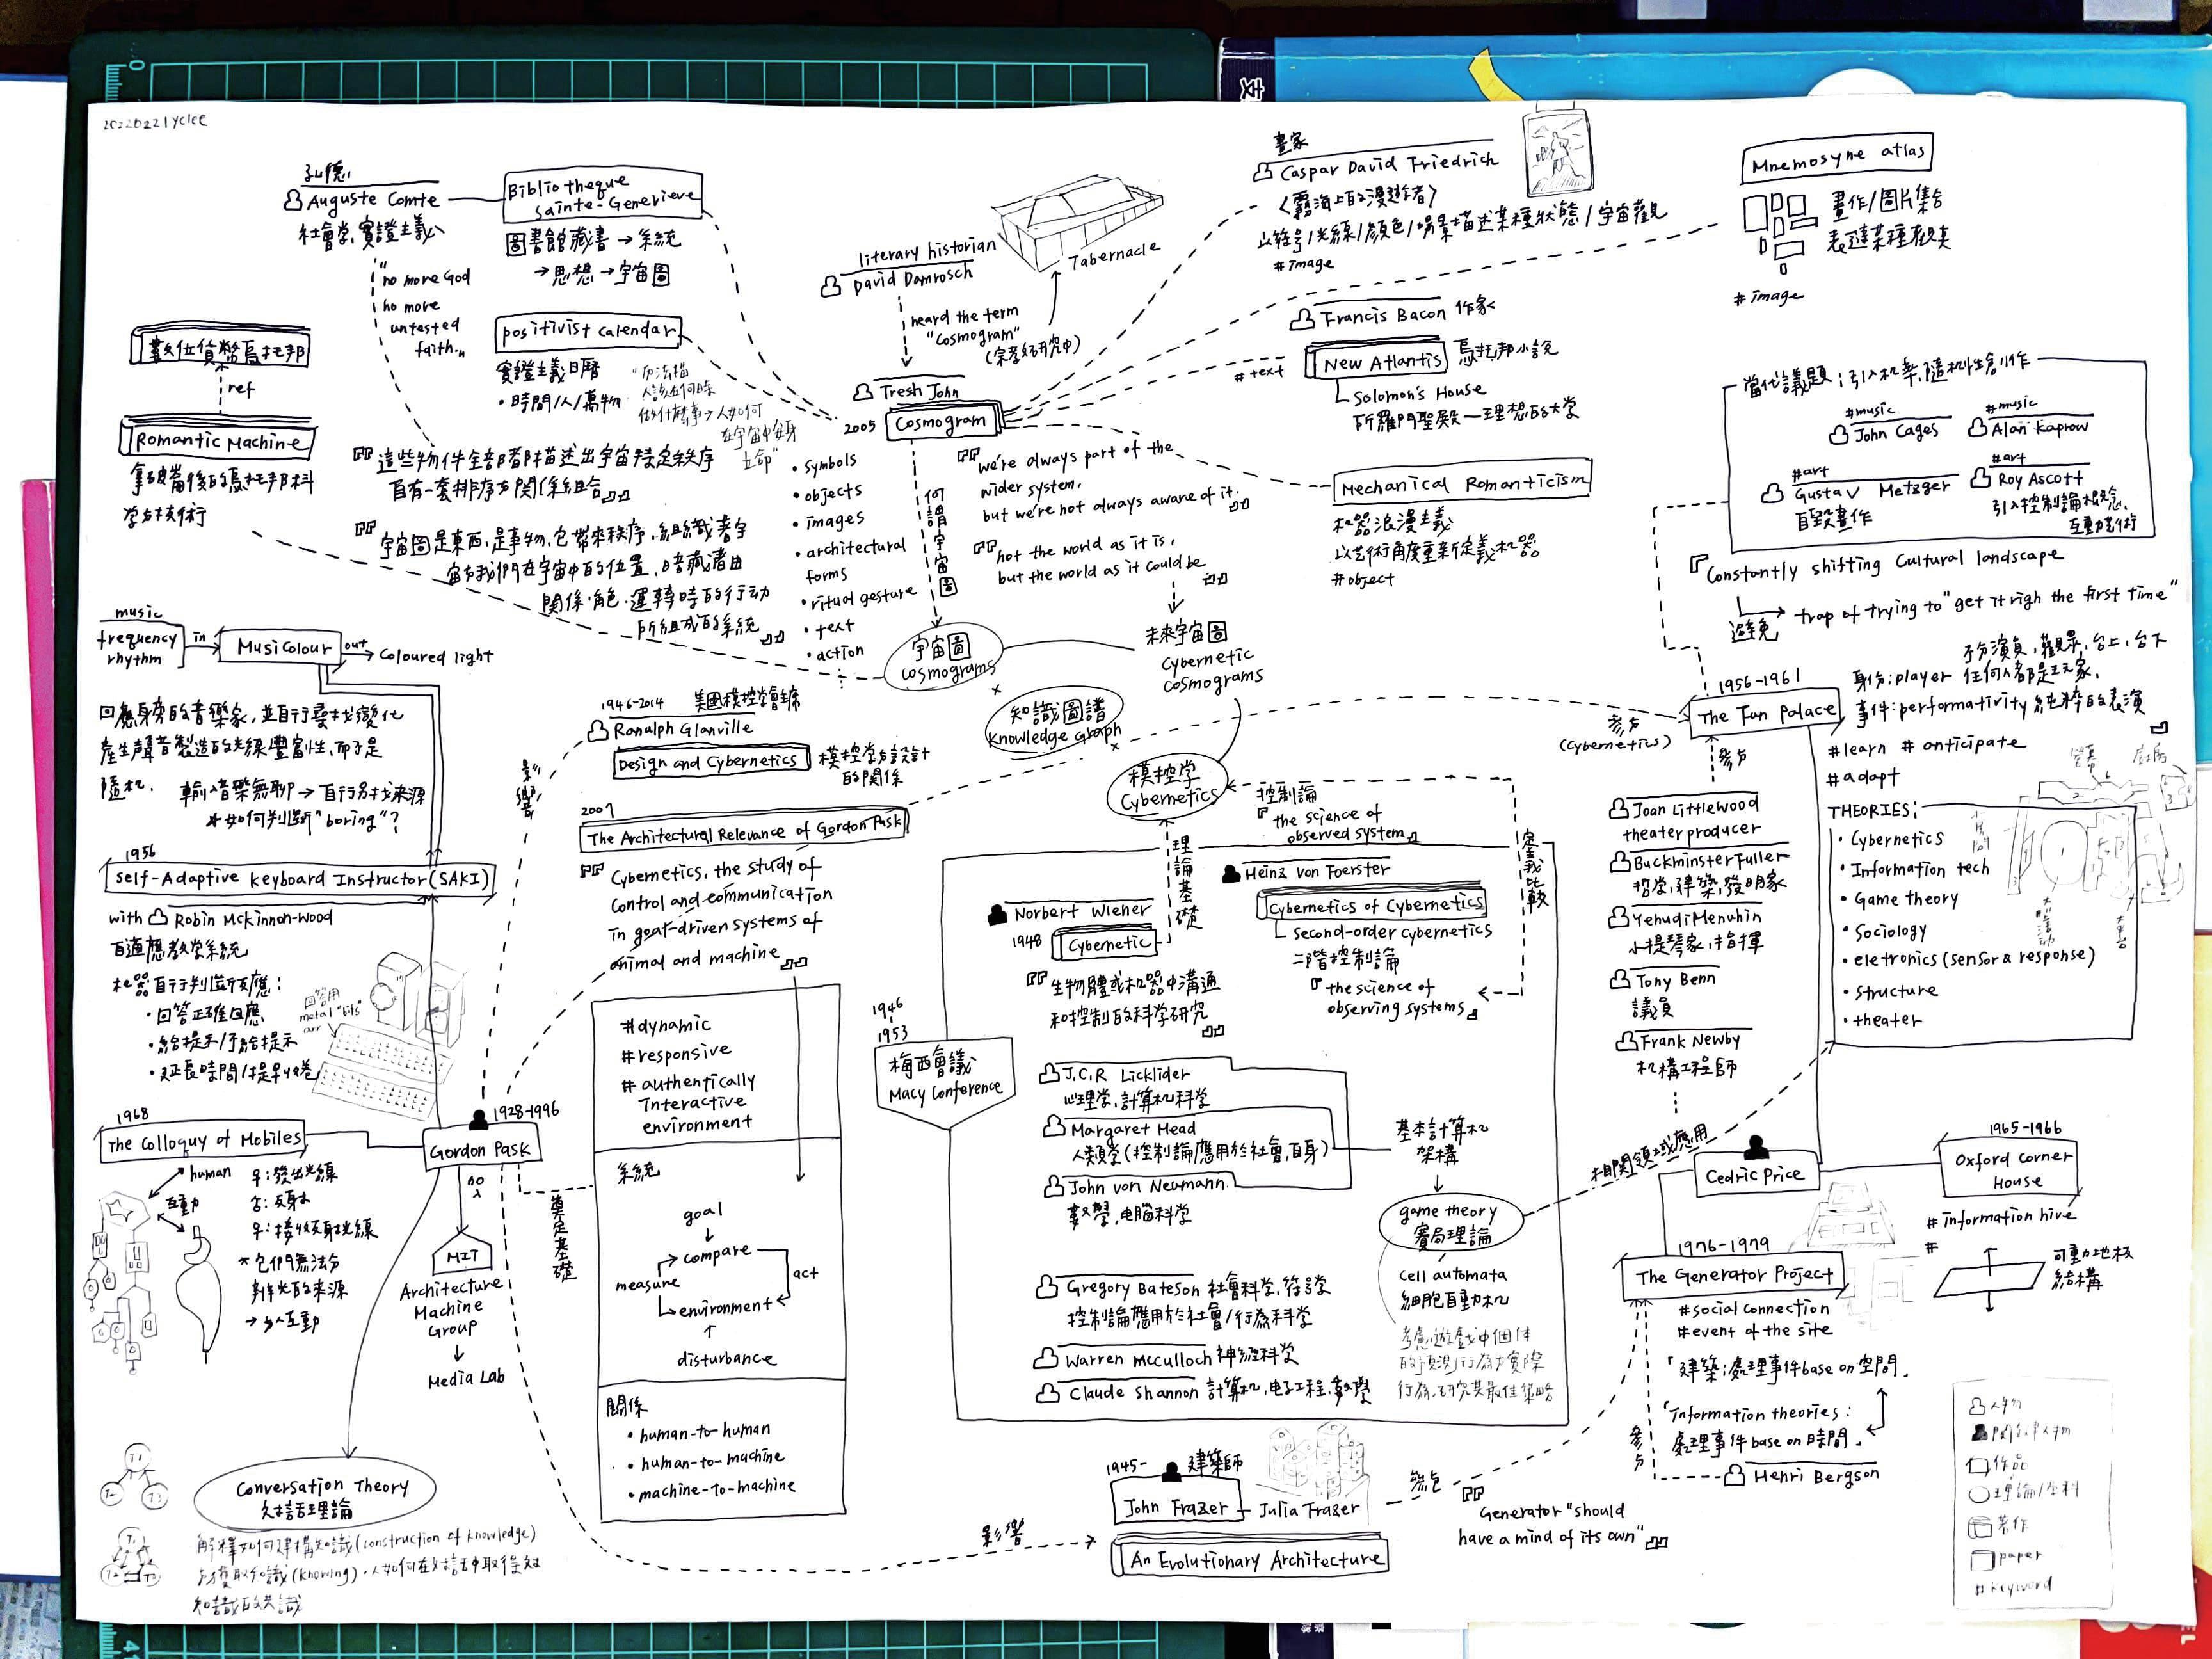 20220221yclee
孔德
Auguste Comte
社會学, 實證主義
"no more God
no more
untested
faith."
Bibliotheque
Sainte-Genevieve
圖書館藏書→系統
→思想→宇宙圖
positivist calendar
實證主義日曆
・時間/人/萬物
數位貨幣烏托邦
ref
Romantic Machine
拿破崙後的烏托邦科
学与技術
這些物件全部都描述出宇宙特定秩序
自有一套排序方関係組合
宇宙圖是東西,是事物,它帶來秩序,組織著宇
宙与我們在宇宙中的位置,暗藏著由
関係・角色・運轉時的行動
所組成的系統
literary historian
David Damrosch
heard the term
"cosmogram"
(宗教研究中)
Tabernacle
Tresh John
2005 Cosmogram
・symbols
・objects
・images
・architectural
forms
・ritual gesture
・text
・action
何謂宇宙圖
we're always part of the
wider system,
but we're not always aware of it.
not the world as it is,
but the world as it could be
宇宙圖
cosmograms
未來宇宙圖
Cybernetic
cosmograms
知識圖譜
Knowledge Graph
畫家
Caspar David Friedrich
〈霧海上的漫遊者〉
以符号/光線/顔色/場景描述某種狀態/宇宙觀
#image
Mnemosyne atlas
畫作/圖片集合
表達某種觀点
#image
Francis Bacon 作家
#text
New Atlantis 烏托邦小説
Solomon's House
所羅門聖殿—理想的大学
Mechanical Romanticism
机器浪漫主義
以艺術角度重新定義机器
#object
當代議題:引入机率,隨机性創作
#music
John Cages
#music
Alan Kaprow
#art
Gustav Metzger
自毀畫作
#art
Roy Ascott
引入控制論概念,
互動艺術
Constantly shifting Cultural landscape
避免 trap of trying to "get it righ the first time"
music
frequency
rhythm
in
Musicolour
out
Coloured light
回應身旁的音樂家,並自行尋找變化
產生聲音製造的光線豐富性,而不是
隨机.
輸入音樂無聊→自行另找来源
*如何判断"boring"?
1956
Self-Adaptive Keyboard Instructor (SAKI)
with Robin McKinnon-Wood
自適應教学系統
机器自行判斷反應:
・回答正確回應
・給提示/不給提示
・延長時間/提早收卷
回答用
metal "bits"
arr
1968
The Colloquy of Mobiles
human
互動
♀:發出光線
♂:反射
♀:接收反射光線
*它們無法分
辨光的来源
→与人互動
1928-1996
Gordon Pask
加入
MIT
Architecture
Machine
Group
Media Lab
Conversation Theory
対話理論
解釋如何建構知識(construction of knowledge)
与獲取知識(knowing)・人如何在対話中取得対
知識的共識
T1
T2 T3
T1
T2 T3
影響
1946-2014 美國模控学會主席
Ranulph Glanville
Design and Cybernetics
模控学与設計
的関係
2007
The Architectural Relevance of Gordon Pask
Cybernetics, the study of
control and communication
in goat-driven systems of
animal and machine
奠定基礎
#dynamic
#responsive
#authentically
Interactive
environment
系統
goal
compare
measure
act
environment
disturbance
関係
・human-to-human
・human-to-machine
・machine-to-machine
模控学
Cybernetics
控制論
the science of
observed system
定義比較
理論基礎
Heinz von Foerster
Cybernetics of Cybernetics
second-order cybernetics
二階控制論
the science of
observing systems
Norbert Wiener
1948 Cybernetic
生物體或机器中溝通
和控制的科学研究
1946
1953
梅西會議
Macy Conference
J.C.R Licklider
心理学,計算机科学
Margaret Mead
人類学(控制論應用於社會,自身)
John von Neumann
數學,电腦科学
基本計算机
架構
game theory
賽局理論
cell automata
細胞自動机
考慮遊戲中個体
的預測行為与實際
行為,研究其最佳策略
Gregory Bateson 社會科学,符号学
控制論應用於社會/行為科学
Warren McCulloch 神經科学
Claude Shannon 計算机,电子工程,數學
影響
1945- 建築師
John Frazer — Julia Frazer
An Evolutionary Architecture
參与
Generator "should
have a mind of its own"
參与
(Cybernetics)
1956-1961
The Fun Palace
身份:player
不分演員,觀眾,台上,台下
任何人都是玩家.
事件:performativity 純粹的表演
#learn #anticipate
#adapt
參与
Joan Littlewood
theater producer
Buckminster Fuller
哲学,建築,發明家
Yehudi Menuhin
小提琴家,指揮
Tony Benn
議員
Frank Newby
机構工程師
THEORIES:
・Cybernetics
・Information tech
・Game theory
・Sociology
・eletronics (sensor & response)
・structure
・theater
相関領域應用
Cedric Price
1965-1966
Oxford Corner
House
#Information hive
#
可動地板
結構
1976-1979
The Generator Project
#social connection
#event of the site
「建築:處理事件base on 空間」
「Information theories:
處理事件base on 時間」
參与
Henri Bergson
人物
関鍵人物
作品
理論/学科
著作
paper
#keyword